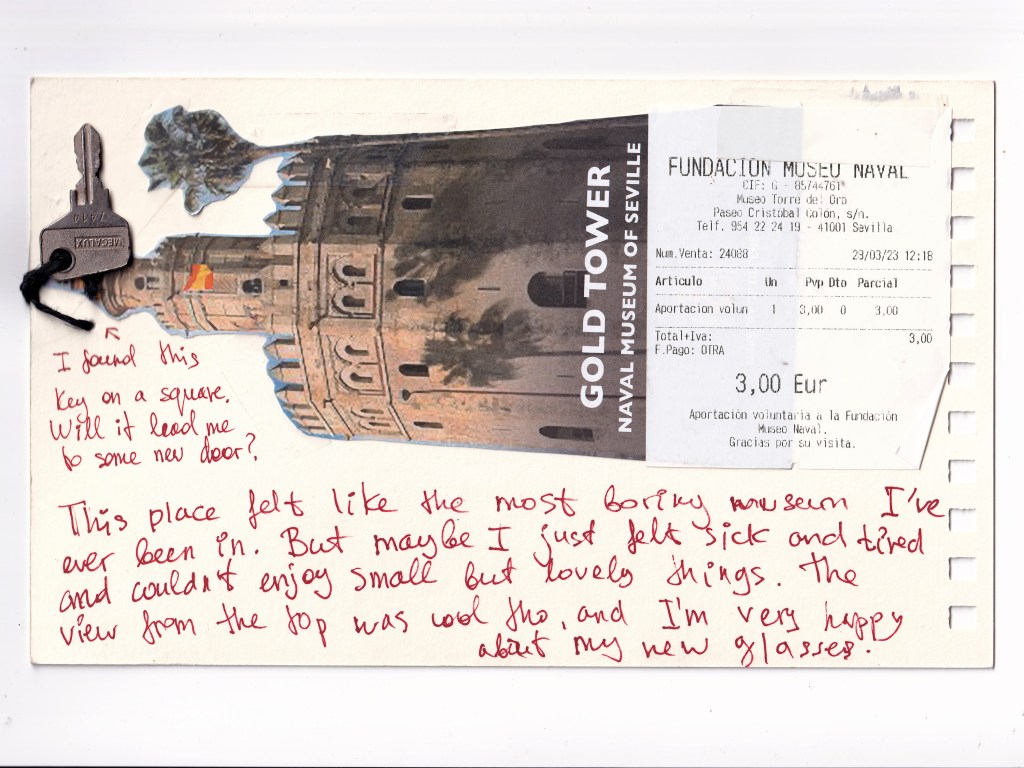 7414
MEGALUX
GOLD TOWER
NAVAL MUSEUM OF SEVILLE
FUNDACION MUSEO NAVAL
CIF: G - 85744761*
Museo Torre del Oro
Paseo Cristóbal Colón, s/n.
Telf. 954 22 24 19 - 41001 Sevilla
Num.Venta: 24088 23/03/23 12:18
Articulo Un Pvp Dto Parcial
Aportacion volun 1 3,00 0 3,00
Total+Iva: 3,00
F.Pago: OTRA
3,00 Eur
Aportación voluntaria a la Fundación
Museo Naval.
Gracias por su visita.
I found this
key on a square.
Will it lead me
to some new door?
This place felt like the most boring museum I've
ever been in. But maybe I just felt sick and tired
and couldn't enjoy small but lovely things. The
view from the top was cool tho, and I'm very happy
about my new glasses.